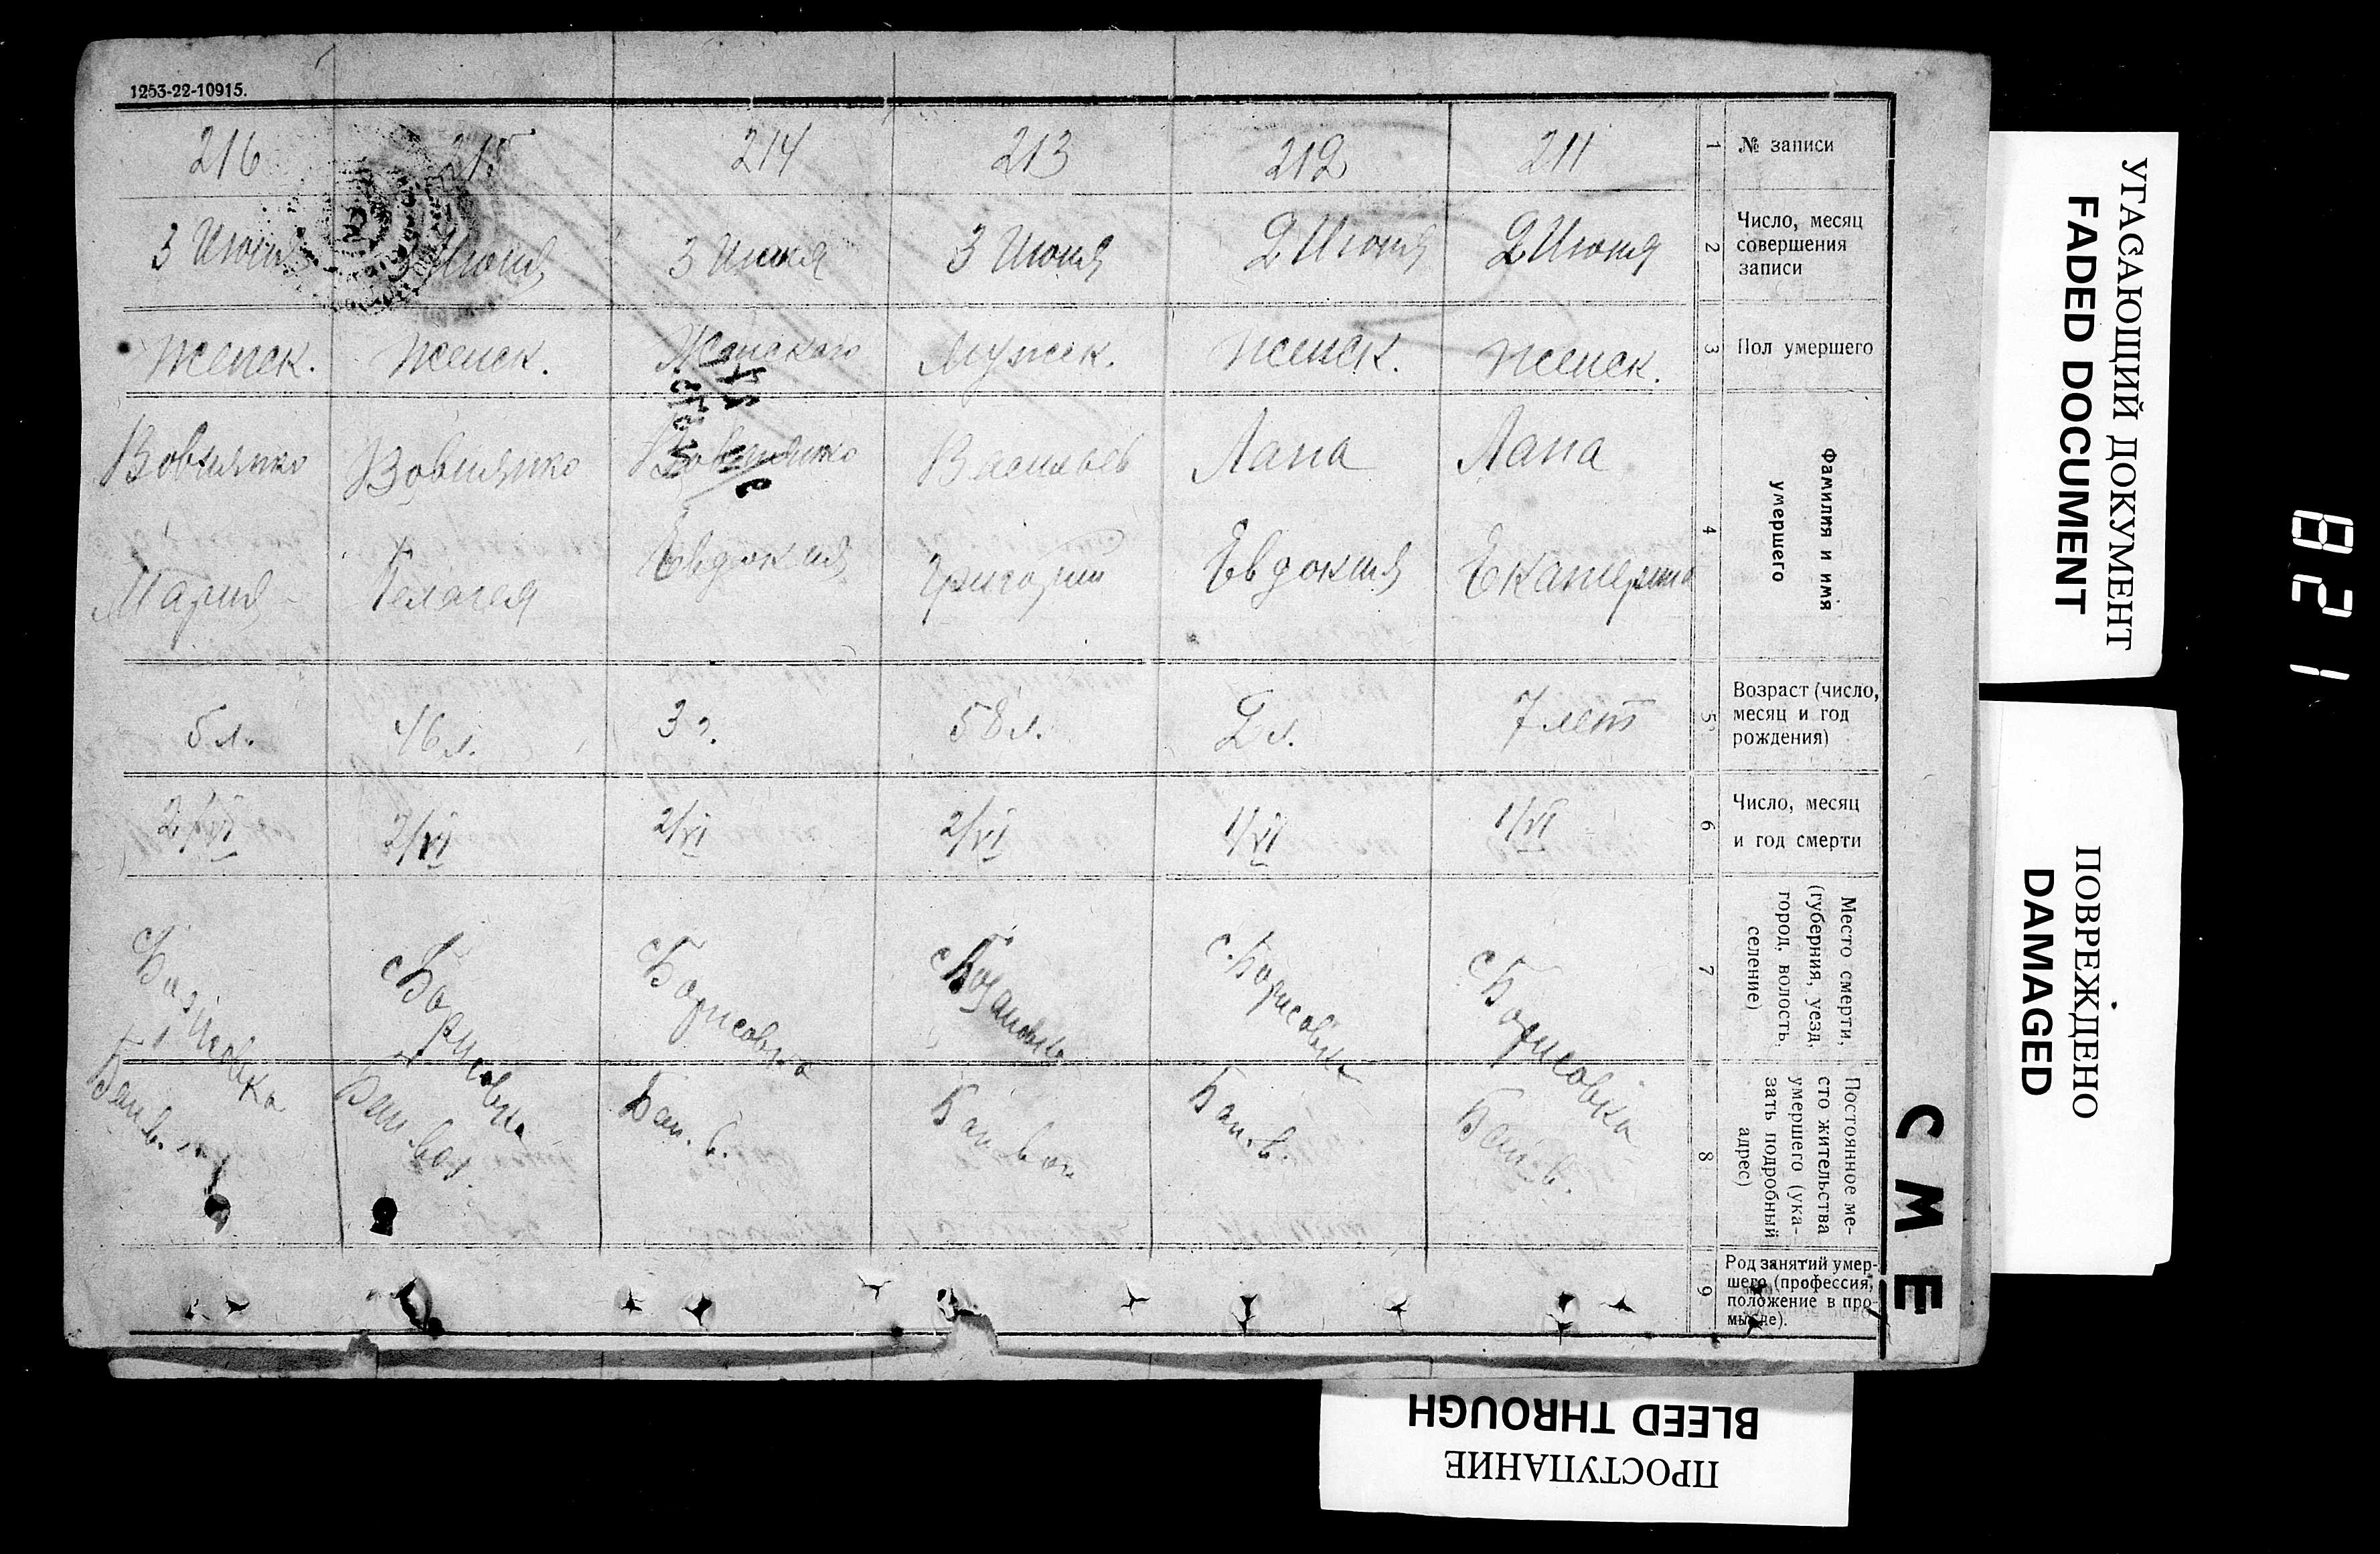 1253-22-10915.
№ записи
1
211
212
213
214
215
216
Число, месяц
совершения
записи
2
2 Июня
2 Июня
3 Июня
3 Июня
3 Июня
3 Июня
Пол умершего
3
женск.
женск.
мужск.
Женского
женск.
женск.
Фамилия и имя
умершего
4
Лапа
Екатерина
Лапа
Евдокия
Васильев
Григорий
Евдокия
Вовнянко
Пелагея
Вовнянко
Мария
Возраст (число,
месяц и год
рождения)
5
7 лет
2 л.
58 л.
3 г.
46 л.
5 л.
Число, месяц
и год смерти
6
1/VI
1/VI
2/VI
2/VI
2/VI
2/VI
Место смерти,
(губерния, уезд,
город, волость,
селение)
7
с Борисовка
с. Борисовка
с Борисовка
с Борисовка
с Борисовка
Постоянное ме-
сто жительства
умершего (ука-
зать подробный
адрес)
8
Род занятий умер-
шего (профессия,
положение в про-
мысле).
9
СМЕ
УГАСАЮЩИЙ ДОКУМЕНТ
FADED DOCUMENT
ПОВРЕЖДЕНО
DAMAGED
ПРОСТУПАНИЕ
BLEED THROUGH
821